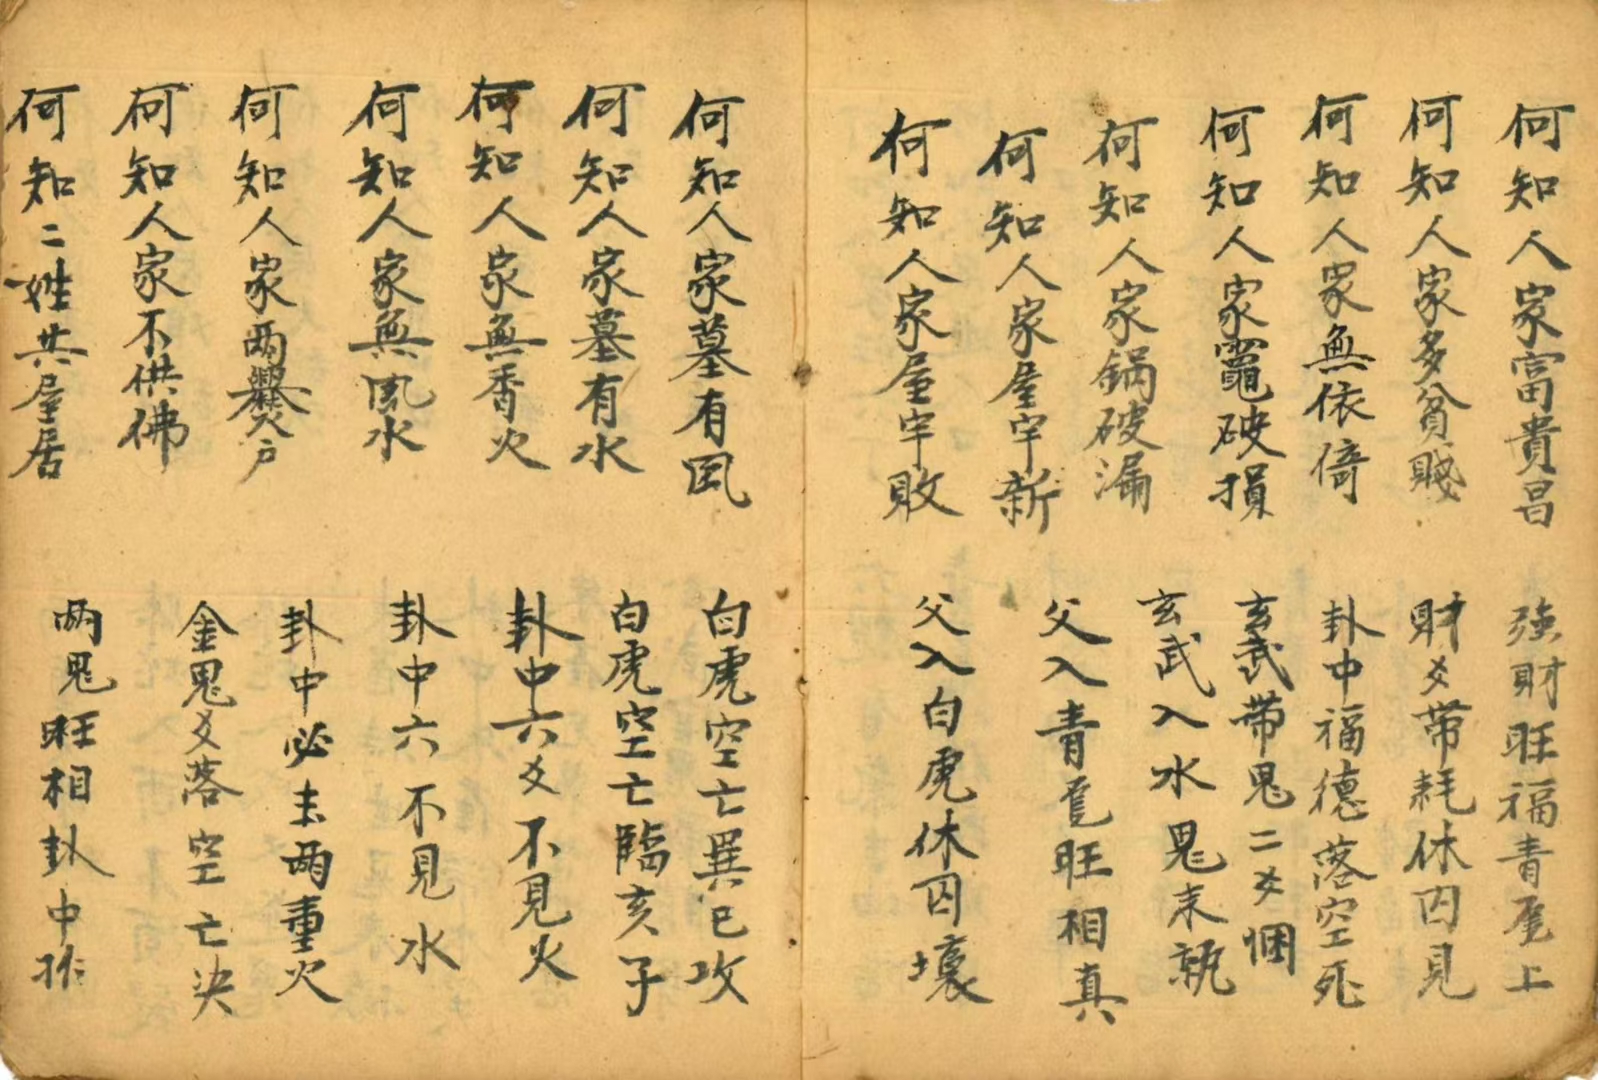 何知人家富貴昌　強財旺福青龙上
何知人家多貧賤　財爻带耗休囚見
何知人家無依倚　卦中福德落空死
何知人家竈破損　玄武带鬼二爻悃
何知人家锅破漏　玄武入水鬼来執
何知人家屋宇新　父入青龙旺相真
何知人家屋宇敗　父入白虎休囚壞
何知人家墓有風　白虎空亡巽巳攻
何知人家墓有水　白虎空亡臨亥子
何知人家無香火　卦中六爻不見火
何知人家無風水　卦中六不見水
何知人家两爨户　卦中必主两重火
何知人家不供佛　金鬼爻落空亡決
何知二姓共屋居　两鬼旺相卦中推